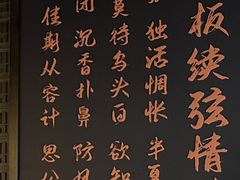 板续弦情
独活惆怅 半夏
莫待乌头白 欲知
沉香扑鼻 防风
佳期从容计 思